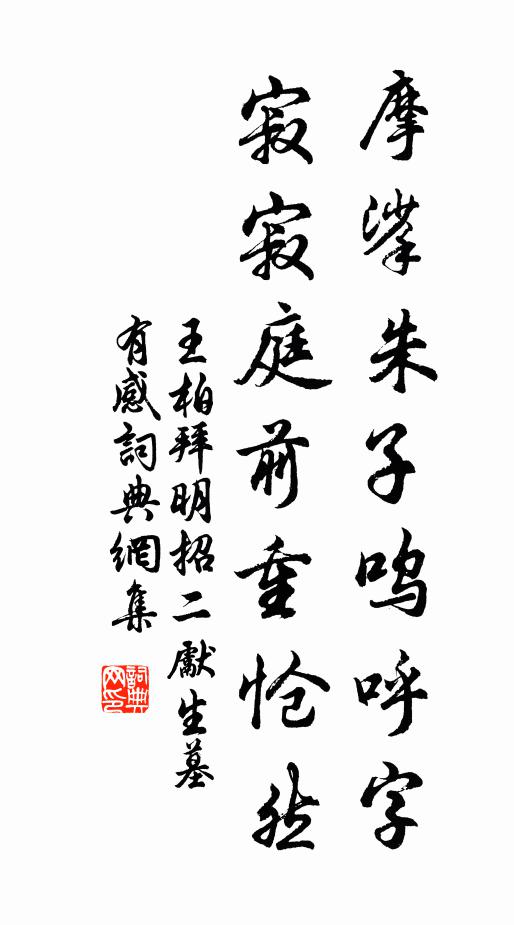 摩挲朱子嗚呼字
寂寂庭前重愴然
王柏拜明招二獻生墓
有感詞典網集
詞典網印